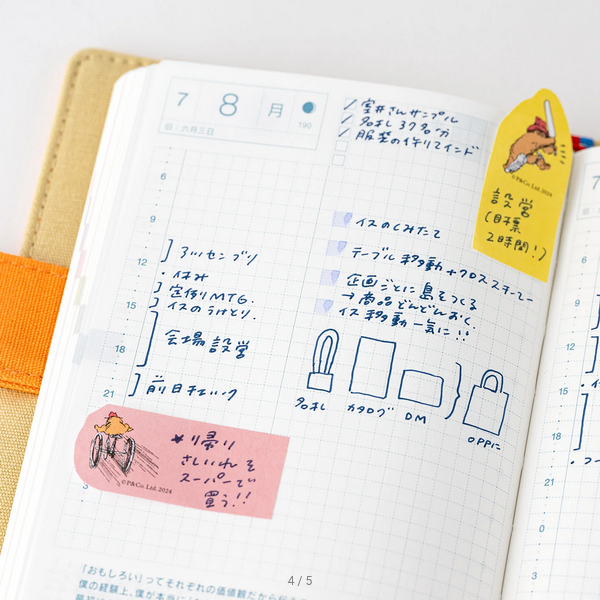 7 8 月
190
旧：六月三日
室井さんサンプル
名札 37名分
服装の件リマインド
©P&Co. Ltd. 2024
設営
(目標
2時間!)
6
9
12
15
18
21
3
朝センブリ
・休み
定例MTG.
イスのうけとり.
会場設営
前日チェック
イスのくみたて
テーブル移動+クロス
企画ごとに島をつくる
→商品どんどんおく.
イス移動一気に!!
名札
カタログ
DM
OPPに
©P&Co. Ltd. 2024
★帰り
さしいれを
スーパーで
買う!!
「おもしろい」ってそれぞれの価値観だから
僕の経験上、僕が本当に
4 / 5
7
6
9
12
15
18
21
0
3